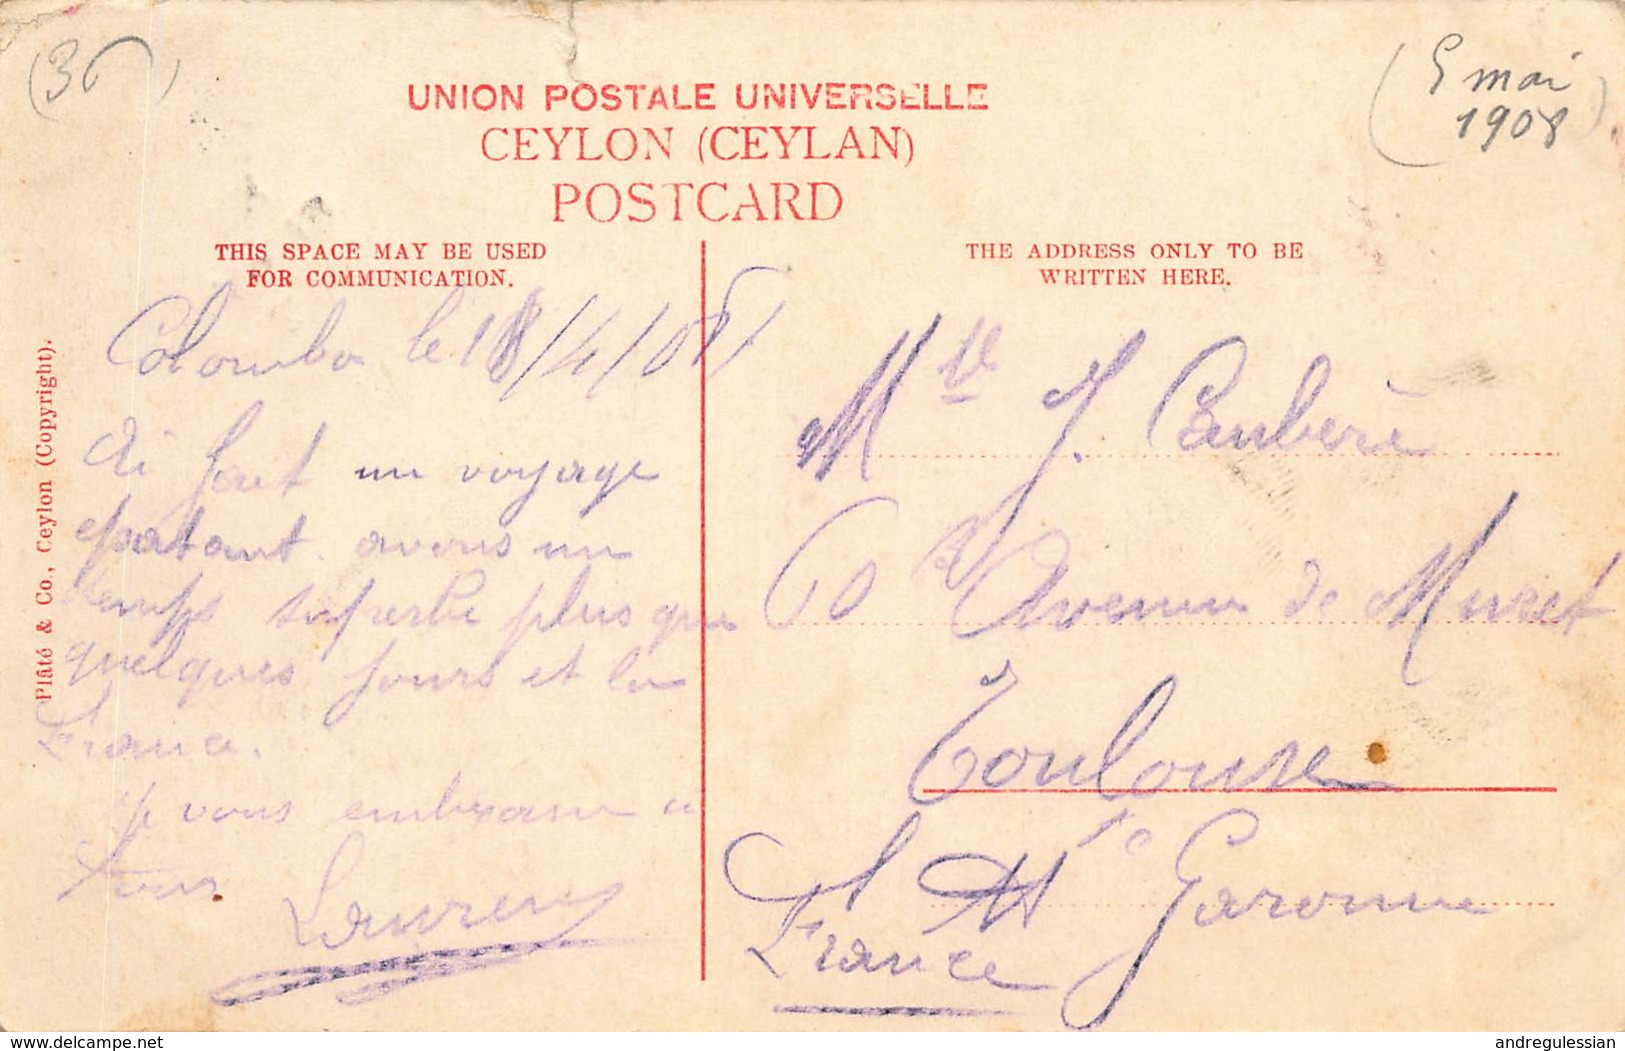 (36)
5 mai
1908
UNION POSTALE UNIVERSELLE
CEYLON (CEYLAN)
POSTCARD
THIS SPACE MAY BE USED
FOR COMMUNICATION.
THE ADDRESS ONLY TO BE
WRITTEN HERE.
Plâté & Co., Ceylon (Copyright).
Colombo le 18/4/08
Ai fait un voyage
epatant avons un
temps superbe plus que
quelques jours et la
France.
je vous embrasse à
tous
Laurens
Mlle J. Caubère
60 Avenue de Muret
Toulouse
Hte Garonne
France
hip-postcard.com
andregulessian